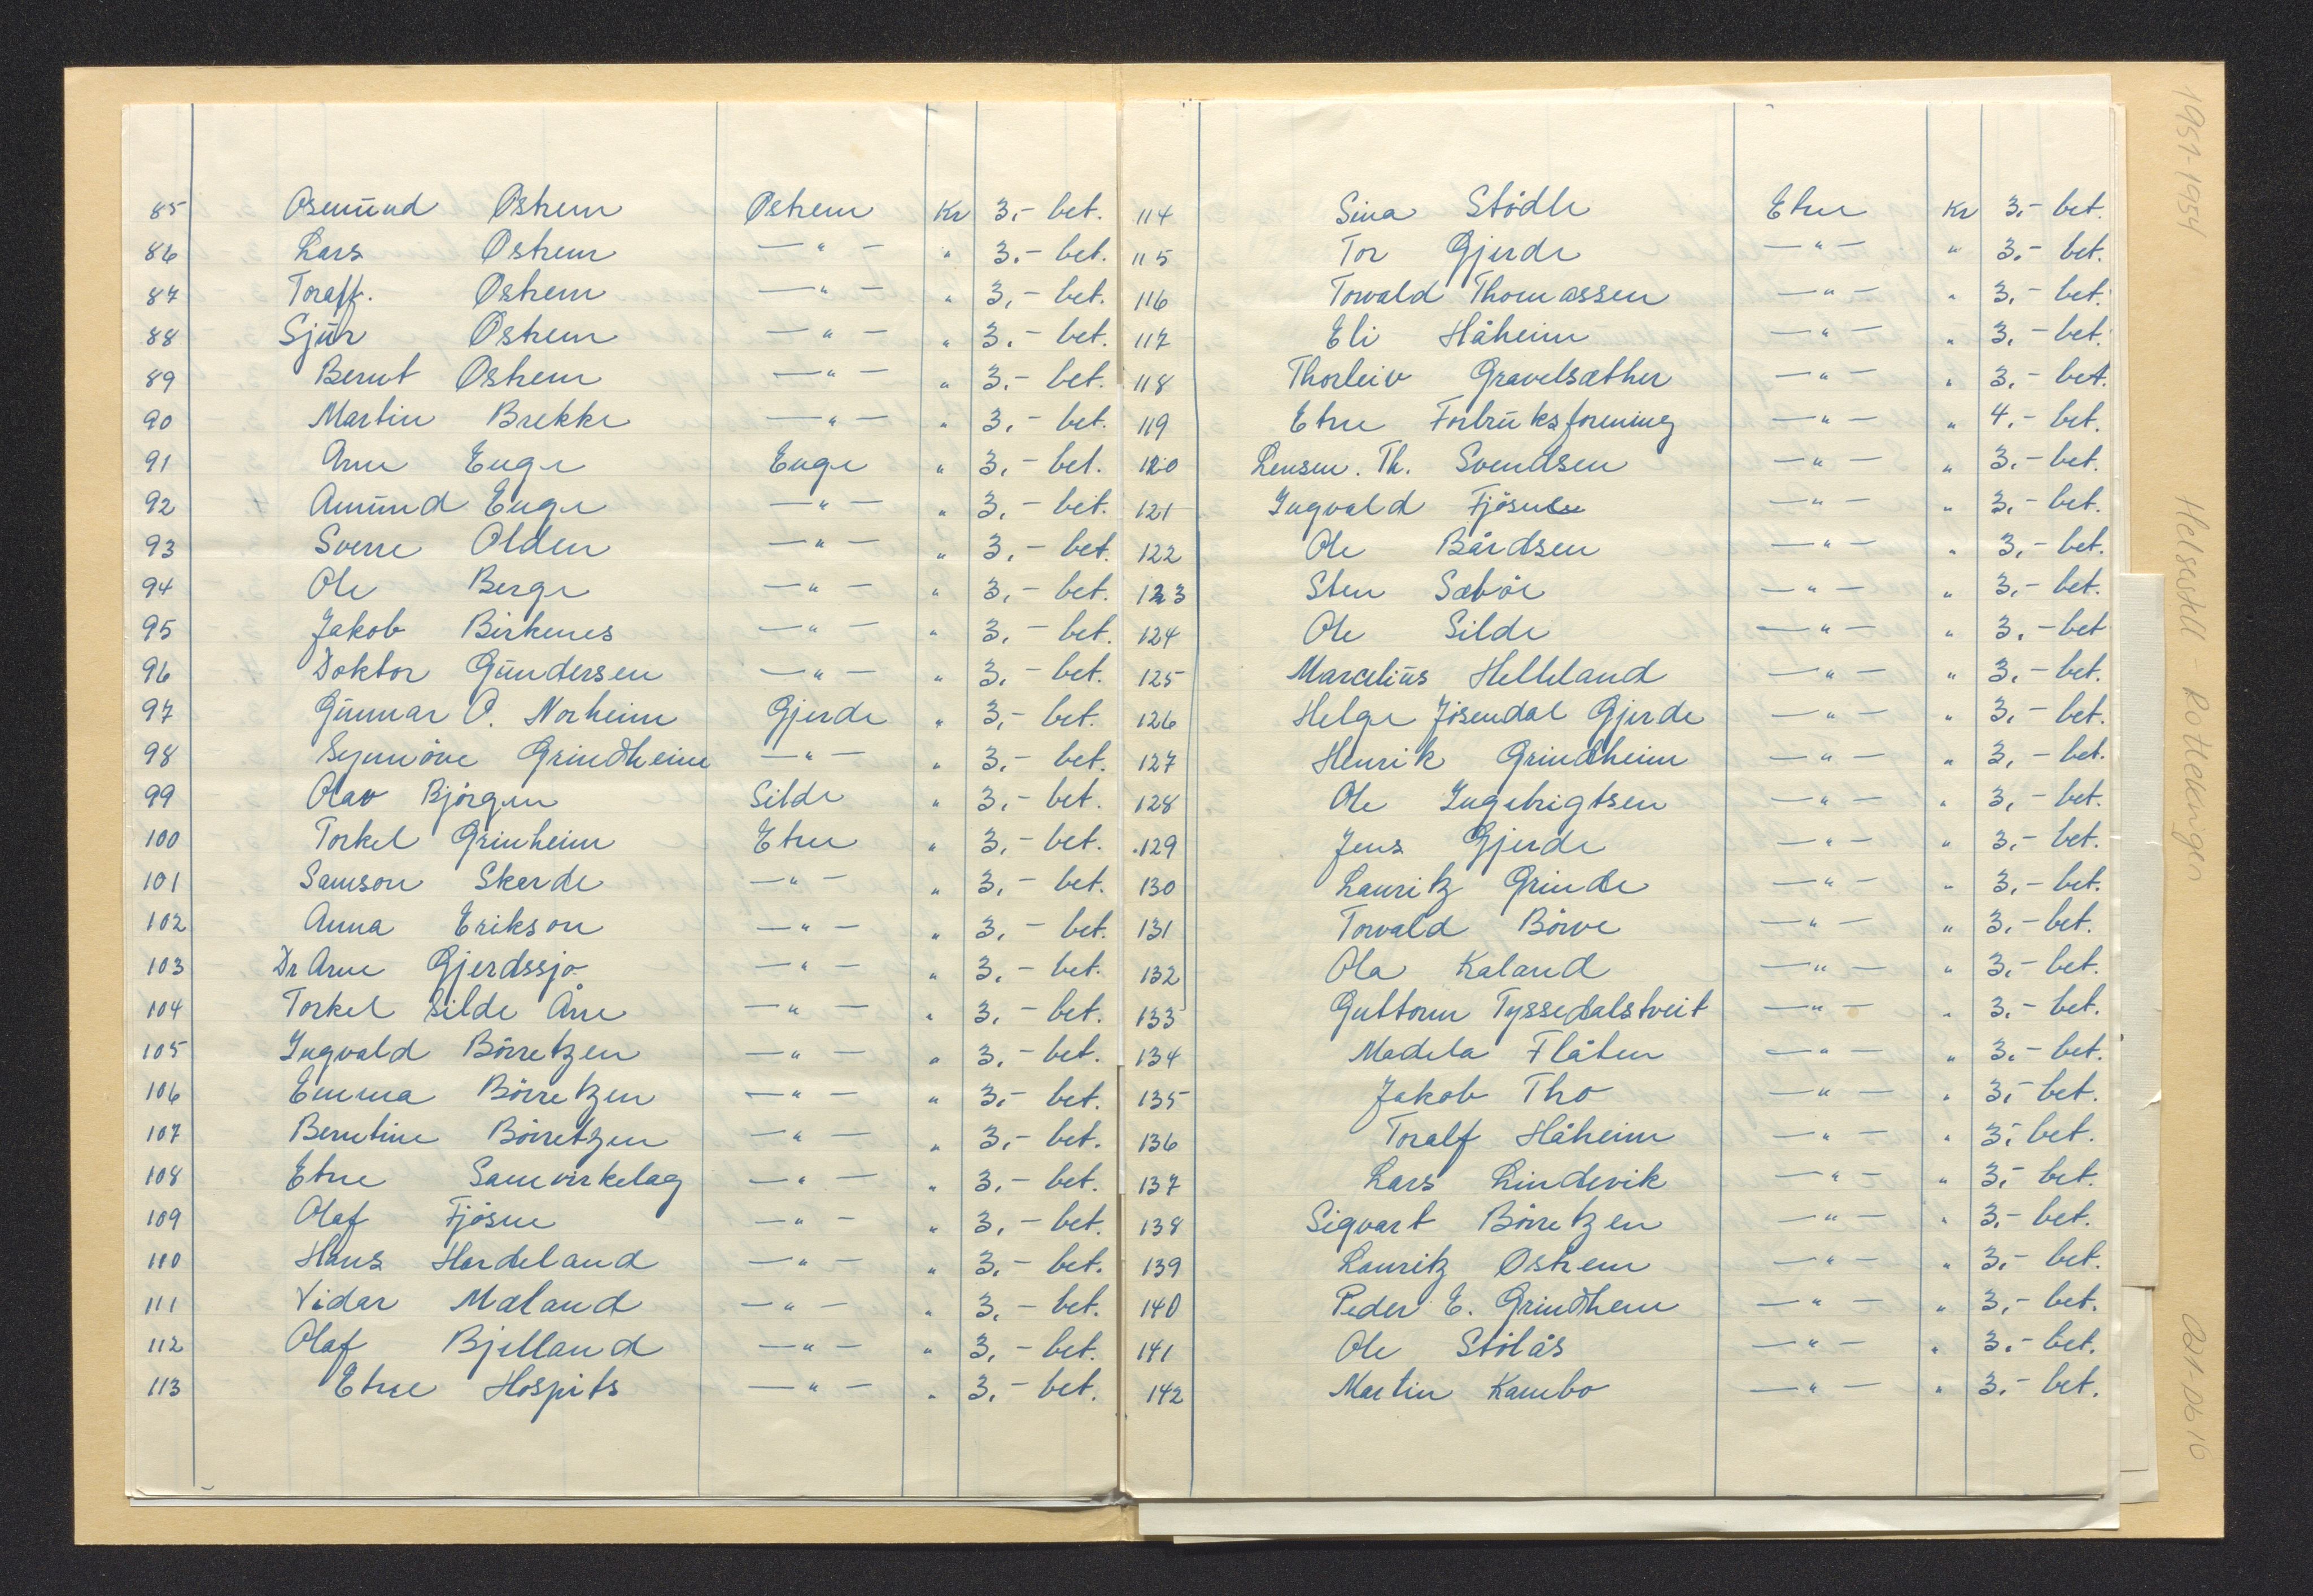 85 Osmund Østrem Østrem Kr 3,- bet.
86 Lars Østrem —"— " 3,- bet.
87 Toralf. Østrem —"— " 3,- bet.
88 Sjur Østrem —"— " 3,- bet.
89 Bernt Østrem —"— " 3,- bet.
90 Martin Brekke —"— " 3,- bet.
91 Arne Enge Enge " 3,- bet.
92 Amund Enge —"— " 3,- bet.
93 Sverre Olden —"— " 3,- bet.
94 Ole Berge —"— " 3,- bet.
95 Jakob Birkenes —"— " 3,- bet.
96 Doktor Gundersen —"— " 3,- bet.
97 Gunnar O. Norheim Gjerde " 3,- bet.
98 Synnöve Grindheim —"— " 3,- bet.
99 Olav Björgen Silde " 3,- bet.
100 Torkel Grinheim Etne " 3,- bet.
101 Samson Skarde —"— " 3,- bet.
102 Anna Erikson —"— " 3,- bet.
103 Dr Arne Gjerdssjø —"— " 3,- bet.
104 Torkel Silde Åne —"— " 3,- bet.
105 Ingvald Börretzen —"— " 3,- bet.
106 Emma Börretzen —"— " 3,- bet.
107 Berntine Börretzen —"— " 3,- bet.
108 Etne Samvirkelag —"— " 3,- bet.
109 Olaf Fjösne —"— " 3,- bet.
110 Hans Hardeland —"— " 3,- bet.
111 Vidar Mæland —"— " 3,- bet.
112 Olaf Bjelland —"— " 3,- bet.
113 Etne Hospits —"— " 3,- bet.
114 Sina Stödle Etne Kr 3,- bet.
115 Tor Gjerde —"— " 3,- bet.
116 Torvald Thomassen —"— " 3,- bet.
117 Eli Håheim —"— " 3,- bet.
118 Thorleiv Gravelsæther —"— " 3,- bet.
119 Etne Forbruksforening —"— " 4,- bet.
120 Lensm. Th. Svendsen —"— " 3,- bet.
121 Ingvald Fjösne —"— " 3,- bet.
122 Ole Bårdsen —"— " 3,- bet.
123 Sten Sæböe —"— " 3,- bet.
124 Ole Silde —"— " 3,- bet
125 Marcelius Helleland —"— " 3,- bet.
126 Helge Jösendal Gjerde —"— " 3,- bet.
127 Henrik Grindheim —"— " 3,- bet.
128 Ole Ingebrigtsen —"— " 3,- bet.
129 Jens Gjerde —"— " 3,- bet.
130 Lauritz Grinde —"— " 3,- bet.
131 Torvald Börve —"— " 3,- bet.
132 Ola Kaland —"— " 3,- bet.
133 Guttorm Tyssedalstveit —"— " 3,- bet.
134 Madela Flåten —"— " 3,- bet.
135 Jakob Tho —"— " 3,- bet.
136 Toralf Håheim —"— " 3,- bet.
137 Lars Lindevik —"— " 3,- bet.
138 Sigvart Börretzen —"— " 3,- bet.
139 Lauritz Østrem —"— " 3,- bet.
140 Peder E. Grindhem —"— " 3,- bet.
141 Ole Stölås —"— " 3,- bet.
142 Martin Kambo —"— " 3,- bet.
1951-1954 Helseutstill - Rottekrigen